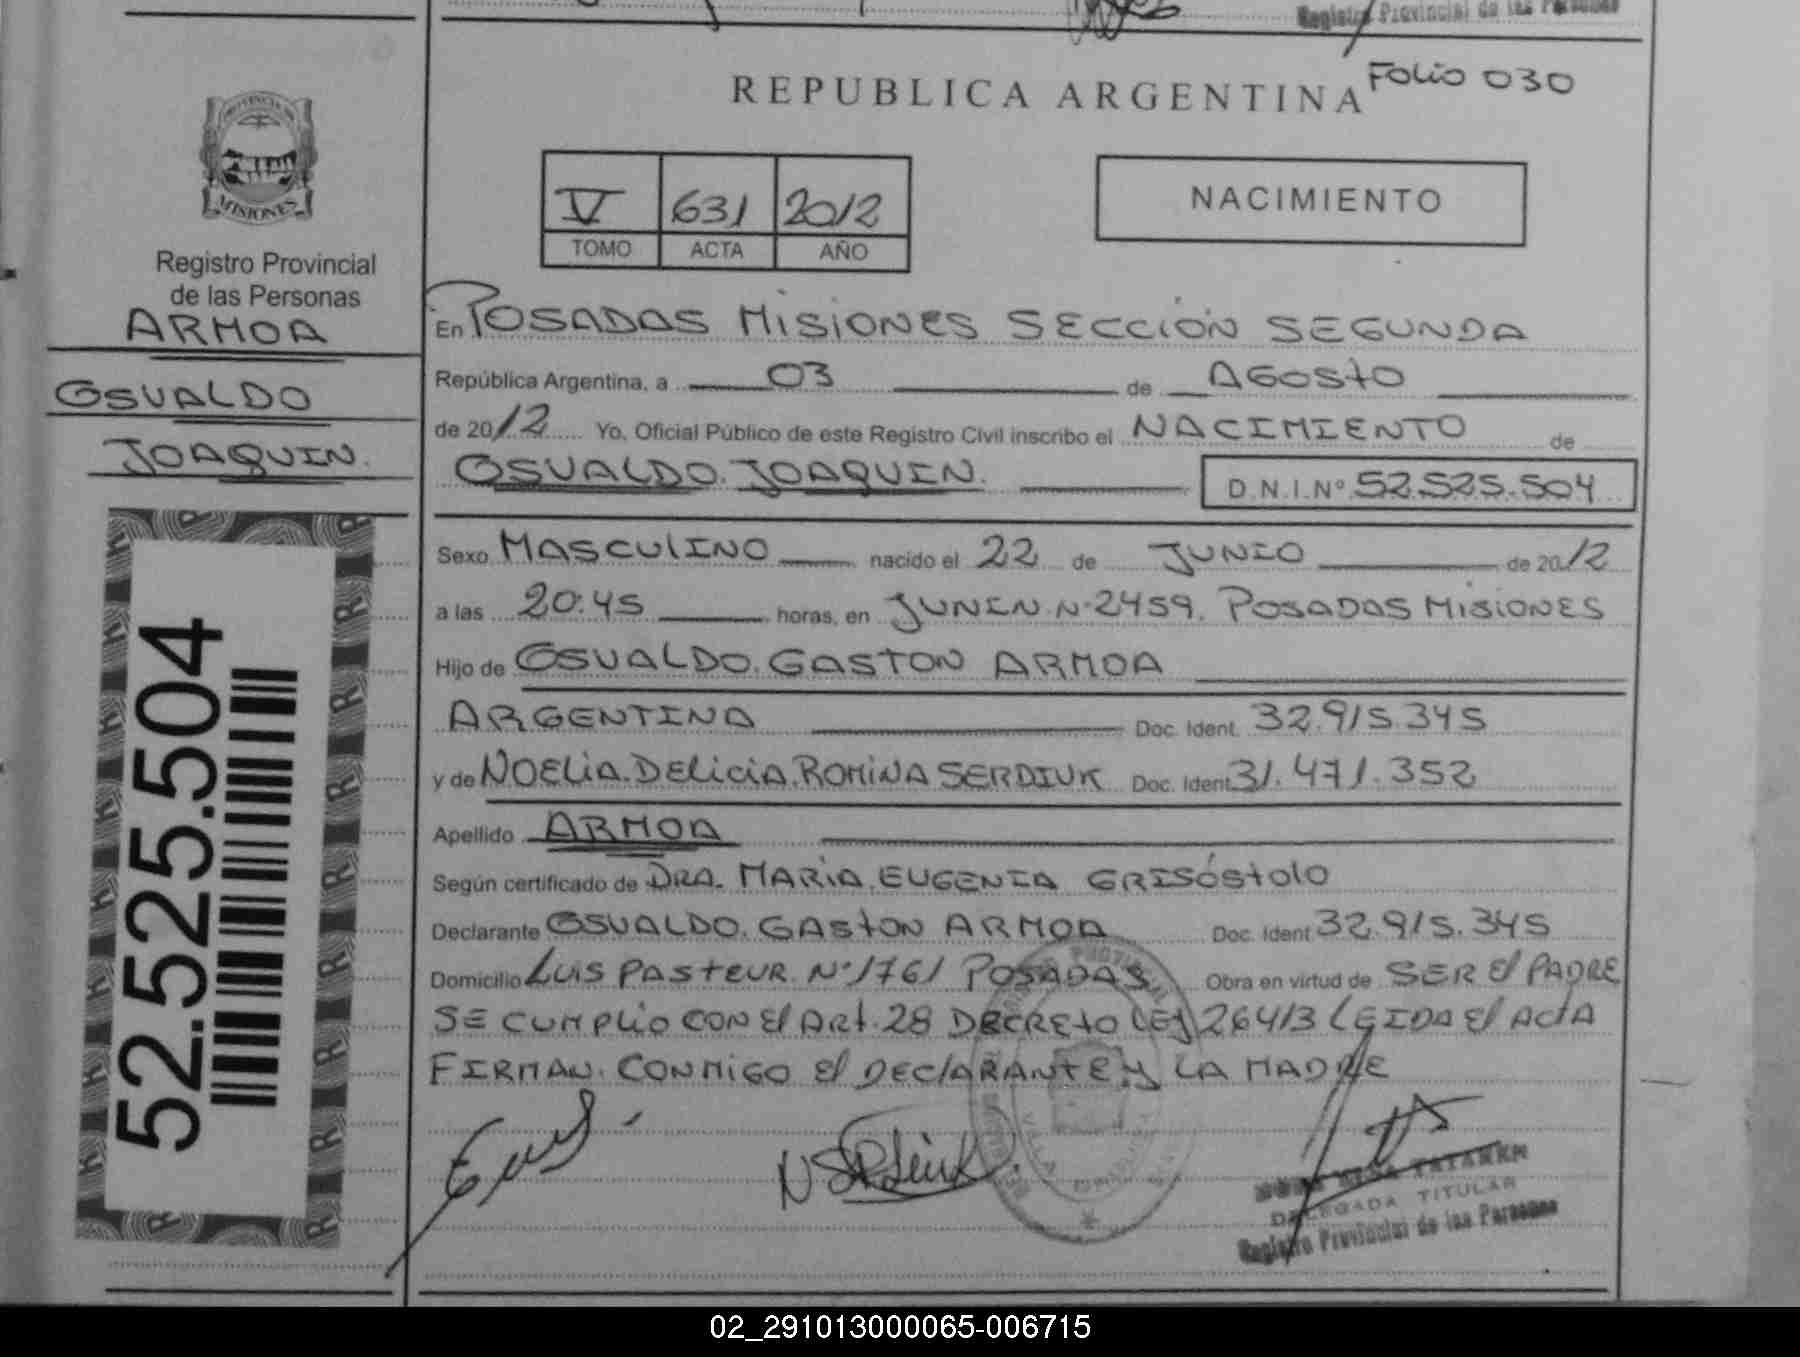 Registro Provincial de las Personas
Folio 030
REPUBLICA ARGENTINA
PROVINCIA DE
MISIONES
Registro Provincial
de las Personas
ARMOA
OSVALDO
JOAQUIN.
52.525.504
V 631 2012
TOMO ACTA AÑO
NACIMIENTO
En POSADAS MISIONES SECCIÓN SEGUNDA
República Argentina, a 03 de AGOSTO
de 2012 Yo, Oficial Público de este Registro Civil inscribo el NACIMIENTO de
OSVALDO. JOAQUIN. D.N.I.Nº 52.525.504
Sexo MASCULINO nacido el 22 de JUNIO de 2012
a las 20:45 horas, en JUNIN Nº 2459. POSADAS MISIONES
Hijo de OSVALDO. GASTON ARMOA
ARGENTINA Doc. Ident. 32.915.345
y de NOELIA. DELICIA. ROMINA SERDIUK Doc. Ident. 31.471.352
Apellido ARMOA
Según certificado de DRA. MARIA. EUGENIA GRISÓSTOLO
Declarante OSVALDO. GASTON ARMOA Doc. Ident. 32.915.345
Domicilio LUIS PASTEUR Nº 1761 POSADAS Obra en virtud de SER El PADRE
SE CUMPLIO CON El ART. 28 DECRETO LEY 26413 LEIDA El ACTA
FIRMAN. CONMIGO El DECLARANTE Y LA MADRE
DELEGADA TITULAR
Registro Provincial de las Personas
02_291013000065-006715